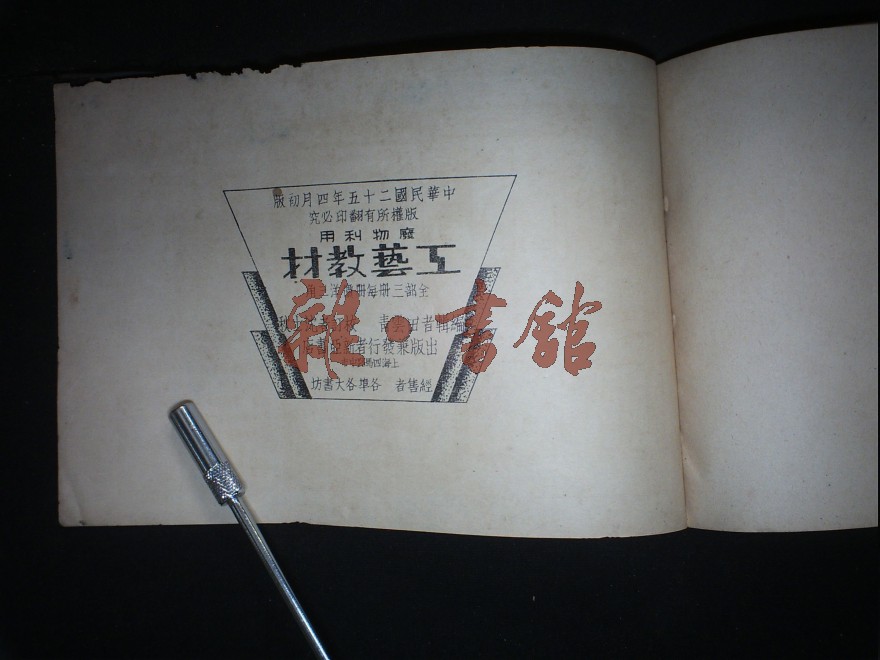 中華民國二十五年四月初版
版權所有翻印必究
廢物利用
工藝教材
全部三冊每冊
編輯者田雲青
出版兼發行者
上海四馬路
經售者 各埠各大書坊
雜·書館